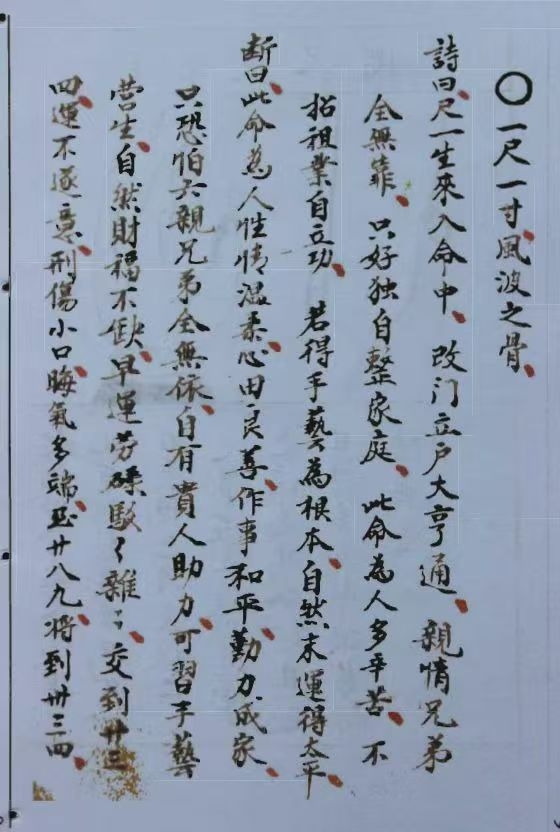 〇一尺一寸風波之骨
詩曰尺一生來入命中 改门立户大亨通 親情兄弟
全無靠 只好独自整家庭 此命為人多辛苦 不
招祖業自立功 若得手藝為根本 自然末運得太平
断曰此命為人性情温柔心田良善作事和平勤力成家
只恐怕六親兄弟全無依自有貴人助力可習手藝
营生自然財福不缺早運劳碌駁々雜々交到廿三
四運不遂意刑傷小口晦氣多端至廿八九将到卅三四